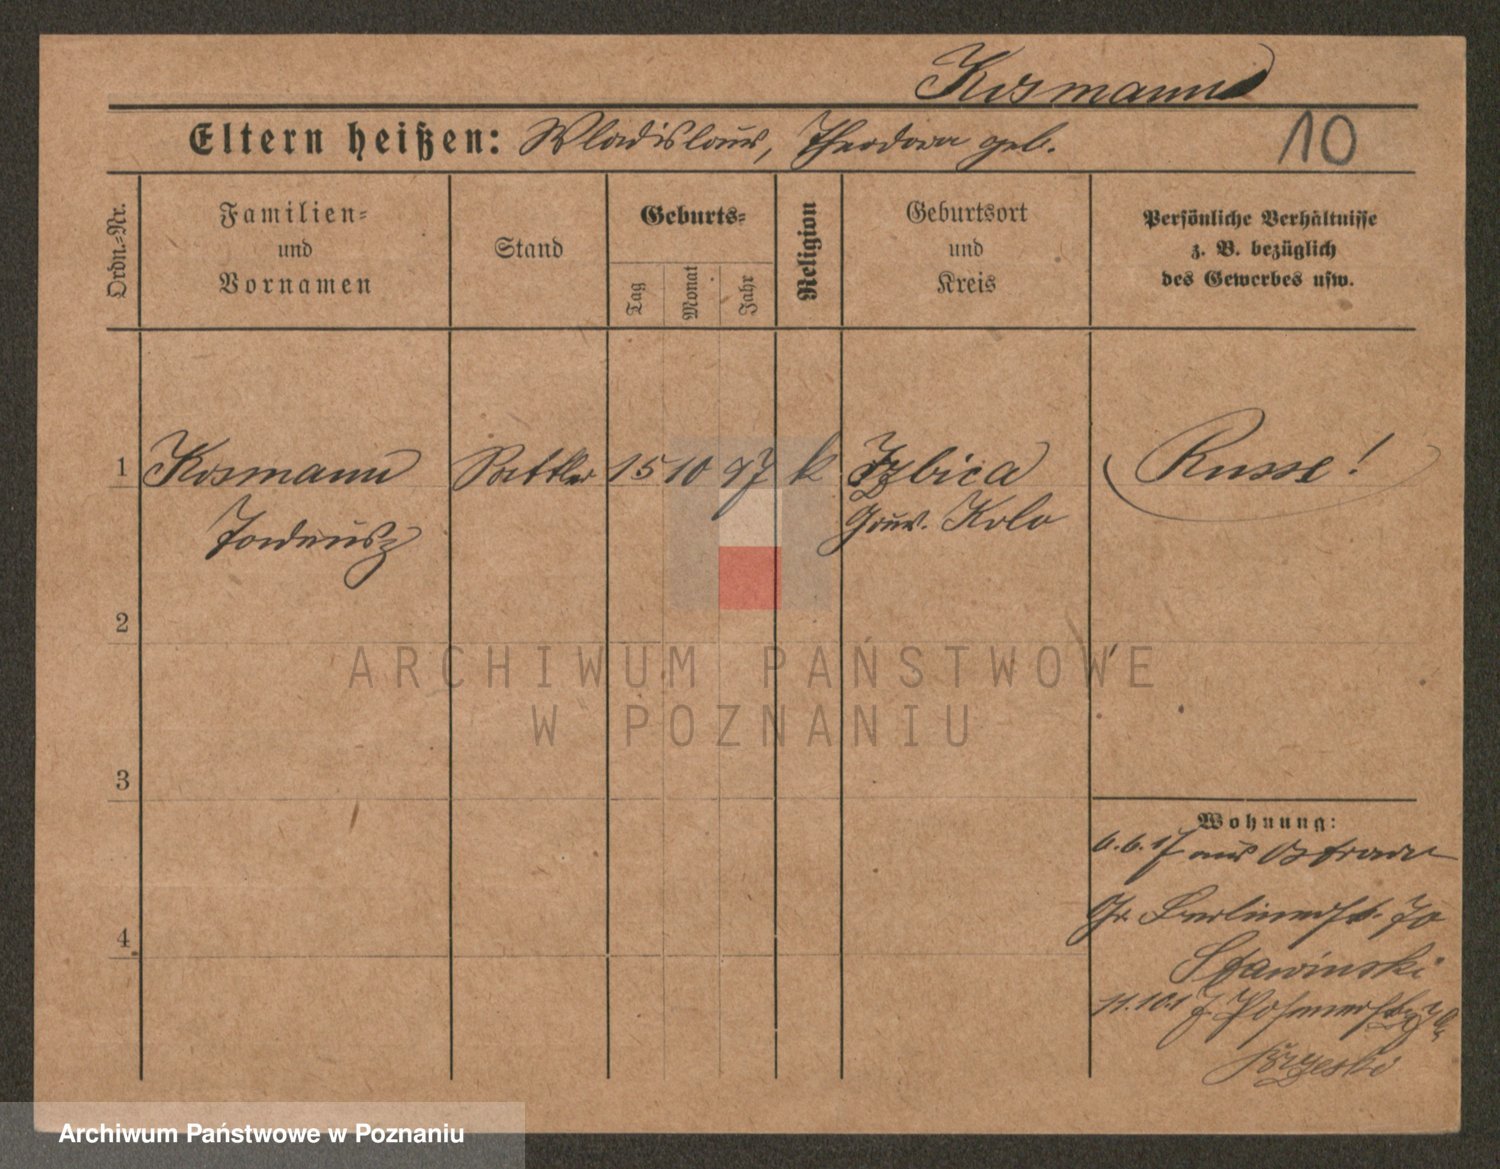 Kosmann
Eltern heißen: Wladislaus, Theodora geb.
10
Ordn.=Nr.
Familien=
und
Vornamen
Stand
Geburts=
Tag
Monat
Jahr
Religion
Geburtsort
und
Kreis
Persönliche Verhältnisse
z. B. bezüglich
des Gewerbes usw.
1 Kosmann Sattler 15 10 97 k Izbica Russe!
Tadeusz Gouv. Kolo
2
ARCHIWUM PAŃSTWOWE
W POZNANIU
3
Wohnung:
6.6.17 aus Ostrowo
4
Gr. Berlinerst. 70
Stawinski
11.10.17 Posenerst
Archiwum Państwowe w Poznaniu